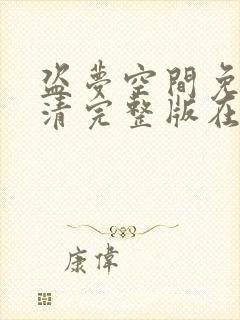 盗夢空間免
清完整版在
康偉